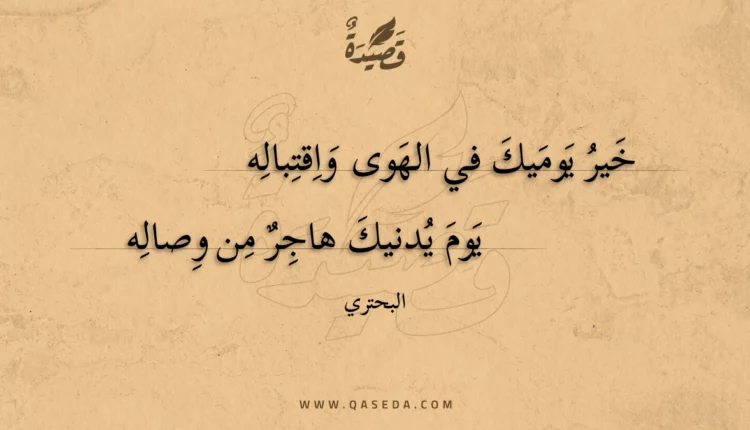 قَصِيْدَةٌ
خَيرُ يَومَيكَ في الهَوى وَاِقتِبالِه
يَومَ يُدنيكَ هاجِرٌ مِن وِصالِه
البحتري
WWW.QASEDA.COM